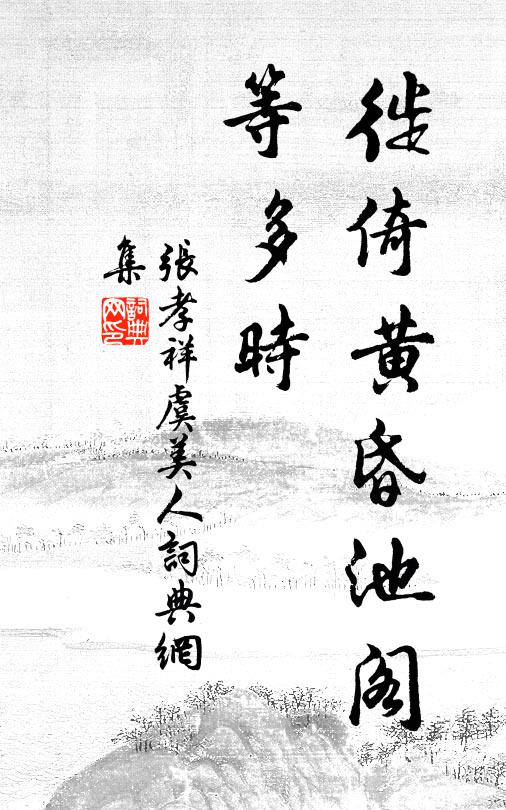 徙倚黄昏池阁
等多時
張孝祥虞美人詞典網
集
詞典
网印